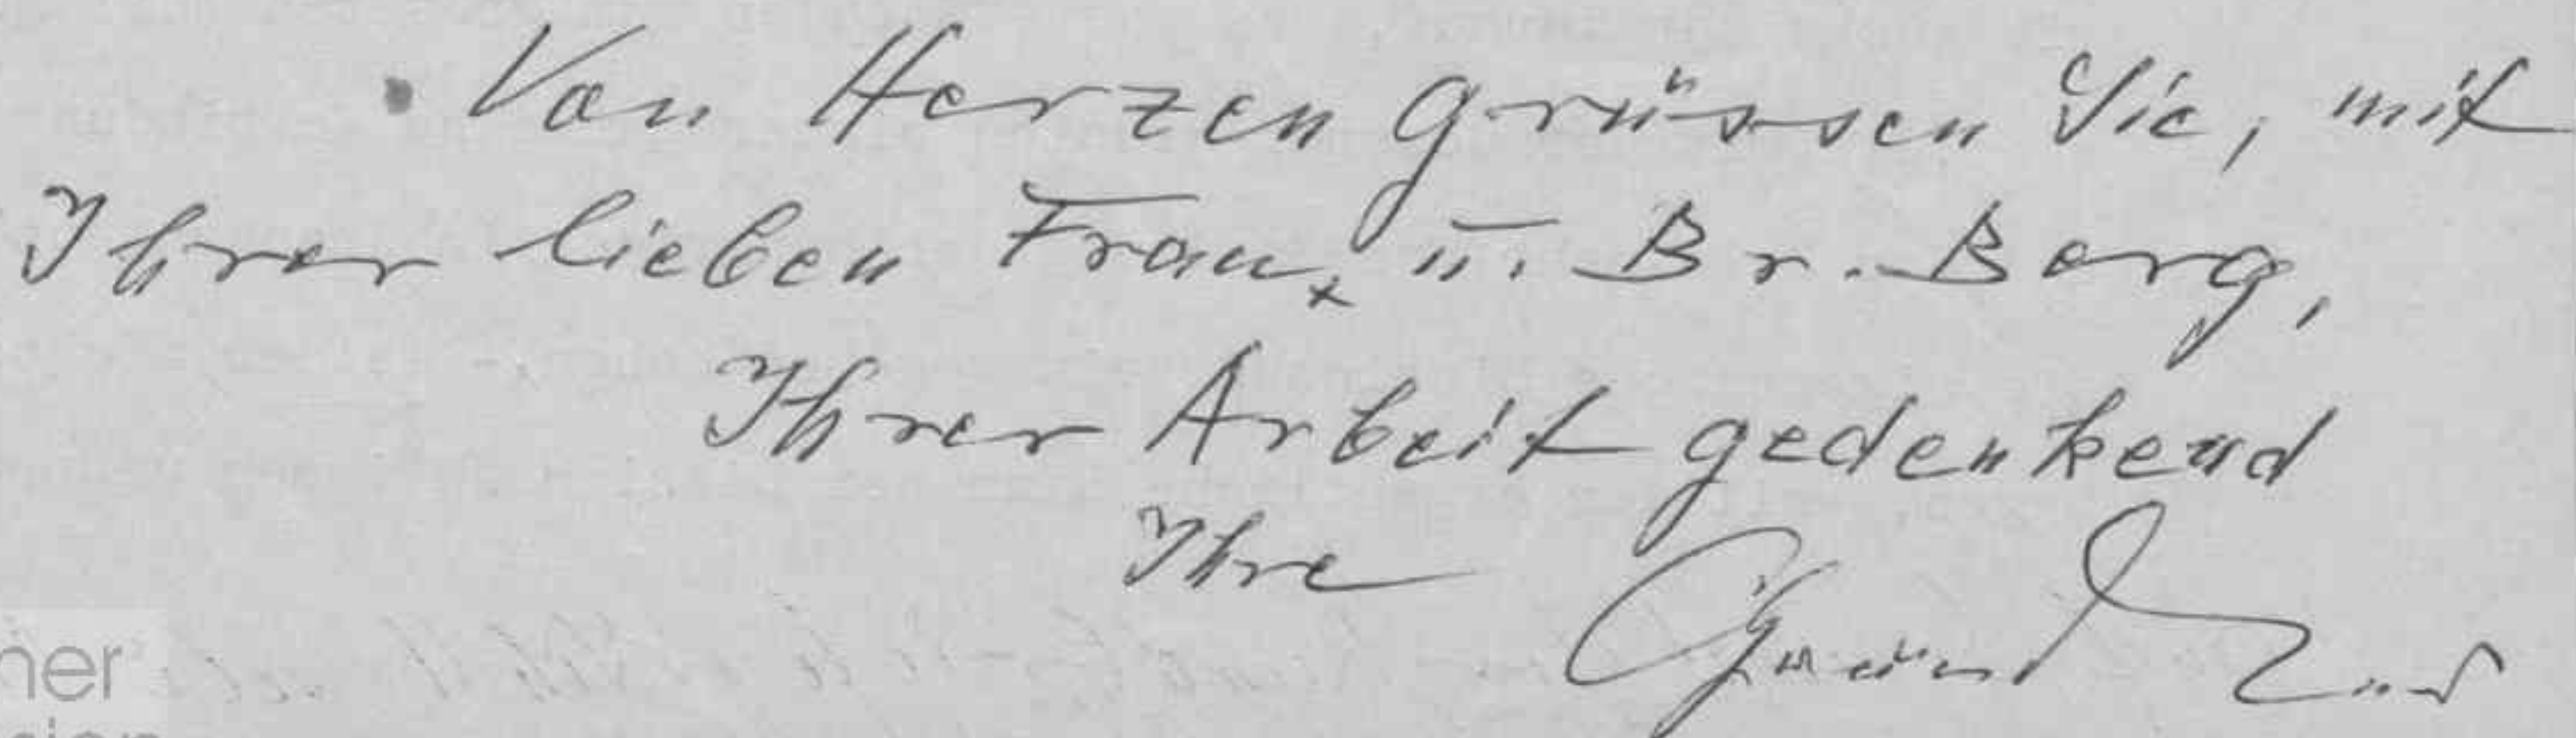 Von Herzen grüssen Sie, mit
Ihrer lieben Frau, u. Br. Berg,
Ihrer Arbeit gedenkend
Ihre
ner